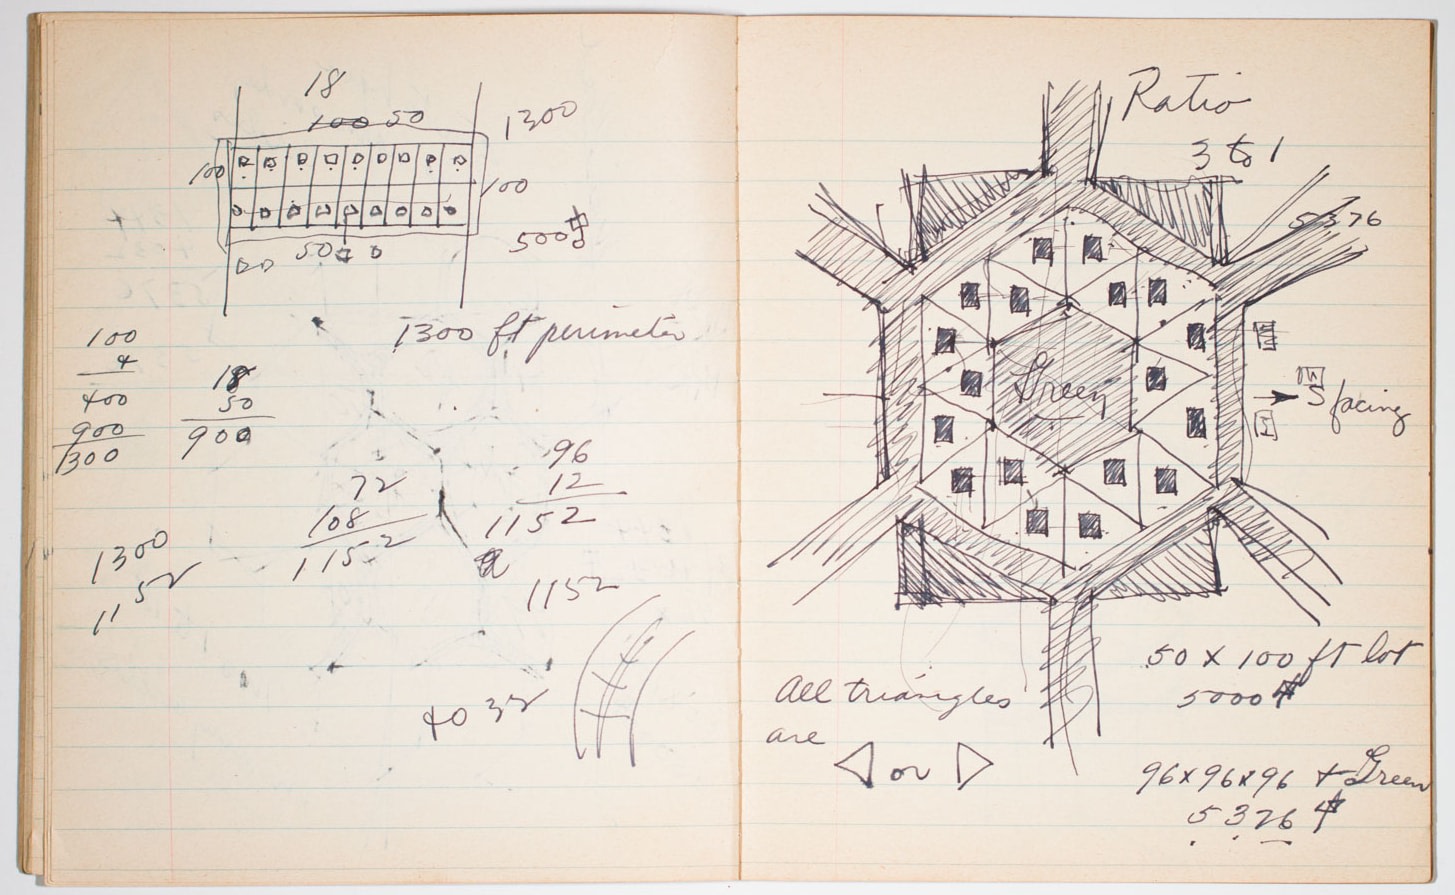 18
100 50
1300
100
100
50
5000 #
1300 ft perimeter
100
4
400
900
1300
18
50
900
72
108
1152
96
12
1152
1300
1152
1152
4032
Ratio
3 to 1
5376
Green
S facing
50 X 100 ft lot
5000 #
All triangles
are ◁ or ▷
96x96x96 + Green
5326 #